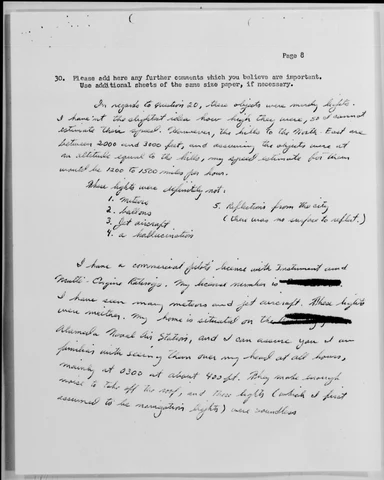 Page 8
30. Please add here any further comments which you believe are important.
Use additional sheets of the same size paper, if necessary.
In regards to question 20, these objects were merely lights.
I have not the slightest idea how high they were, so I cannot
estimate their speed. However, the hills to the North East are
between 2000 and 3000 feet, and assuming the objects were at
an altitude equal to the hills, my speed estimate for them
would be 1200 to 1500 miles per hour.
These lights were definitely not:
1. Meteors
2. balloons
3. Jet aircraft
4. a hallucination
5. Reflections from the city
(there was no surface to reflect.)
I have a commercial pilots license with Instrument and
Multi-Engine Ratings. My license number is
I have seen many meteors and jet aircraft. These lights
were neither. My home is situated on the
Alameda Naval Air Station, and I can assure you I am
familiar with seeing them over my head at all hours,
mainly at 0300 at about 400 ft. They make enough
noise to take off the roof, and these lights (which I first
assumed to be navigation lights) were soundless